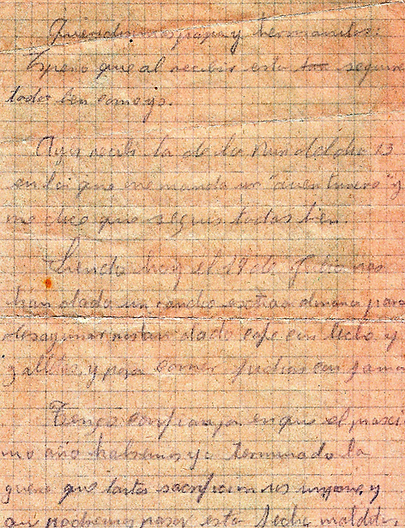 Queridos mamá papa y hermanitos:
Espero que al recibir esta seguireis
todos bien como yo.
Ayer recibi la de la Nina del dia 13
en la que me manda un "aventurero" y
me dice que seguis todos bien.
Siendo hoy el 18 de Julio nos
han dado un rancho extraordinario para
desayunar nos han dado cafe con leche y
galletas, y para comer judias con jamon
Tengo confianza en que el proxi
mo año habremos ya terminado la
guerra que tantos sacrificios nos impone, y
asi podremos pasar esta fecha maldita